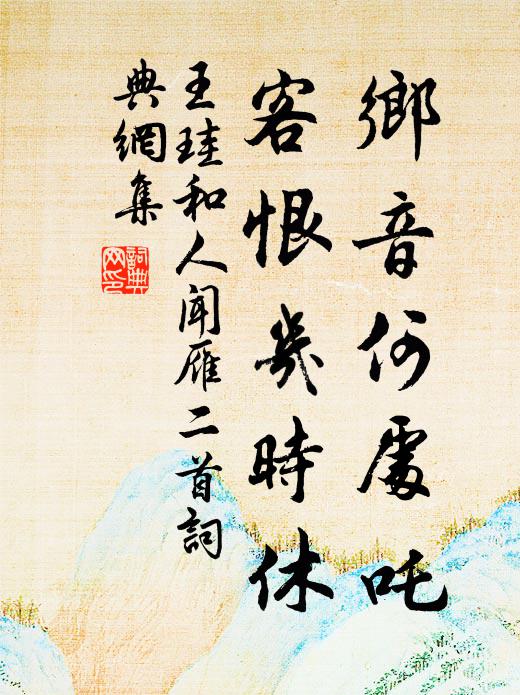 鄉音何處吒
客恨幾時休
王珪和人聞雁二首詞
典網集
詞典
网印